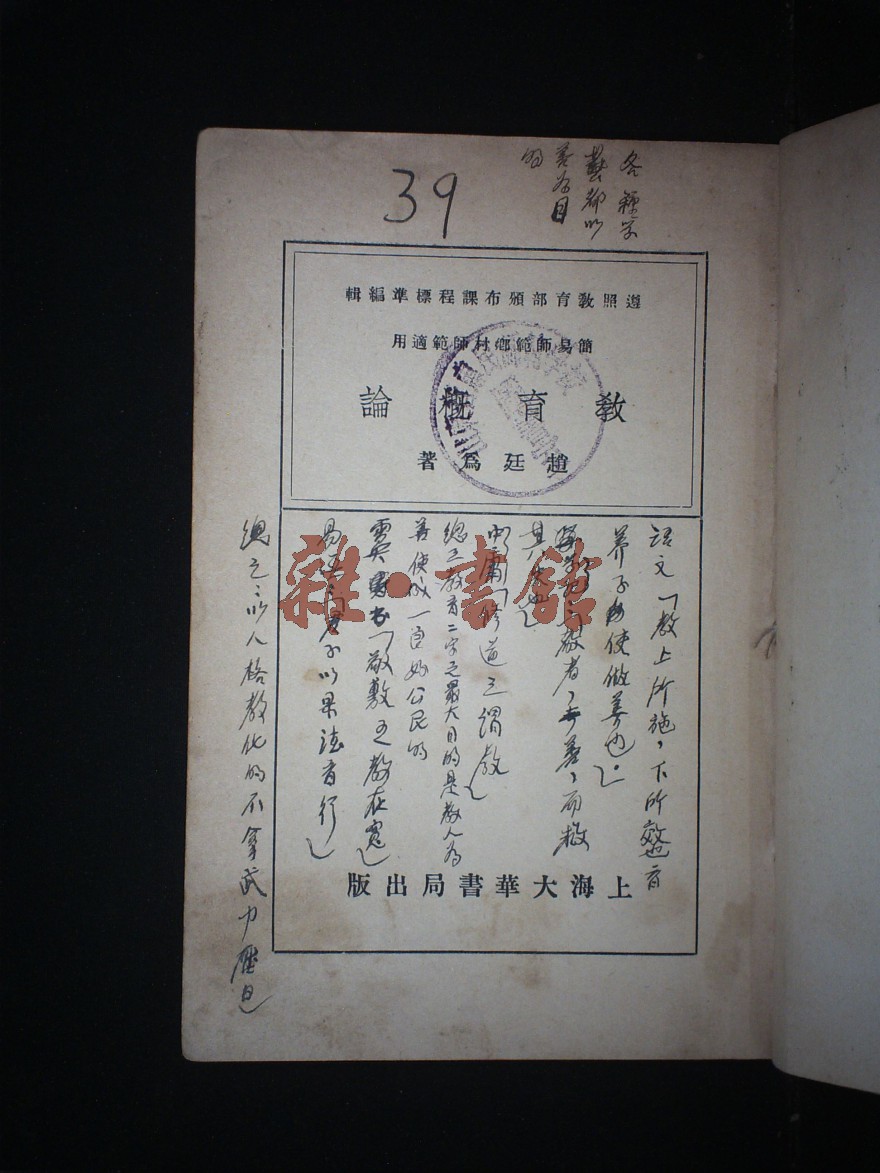 各種学
藝都以
善为目
的
39
遵照教育部頒布課程標準編輯
簡易師範鄉村師範適用
教育概論
趙廷爲著
説文「教上所施，下所效也育
养子使做善也」
者，善，而救
其失也」
中庸「修道之謂教」
總之教育二字之最大目的是教人为
善使成一良好公民的
「敬敷五教在寬」
易 君子以果行育
總之以人格教化的不拿武力壓迫
上海大華書局出版
雜·書館